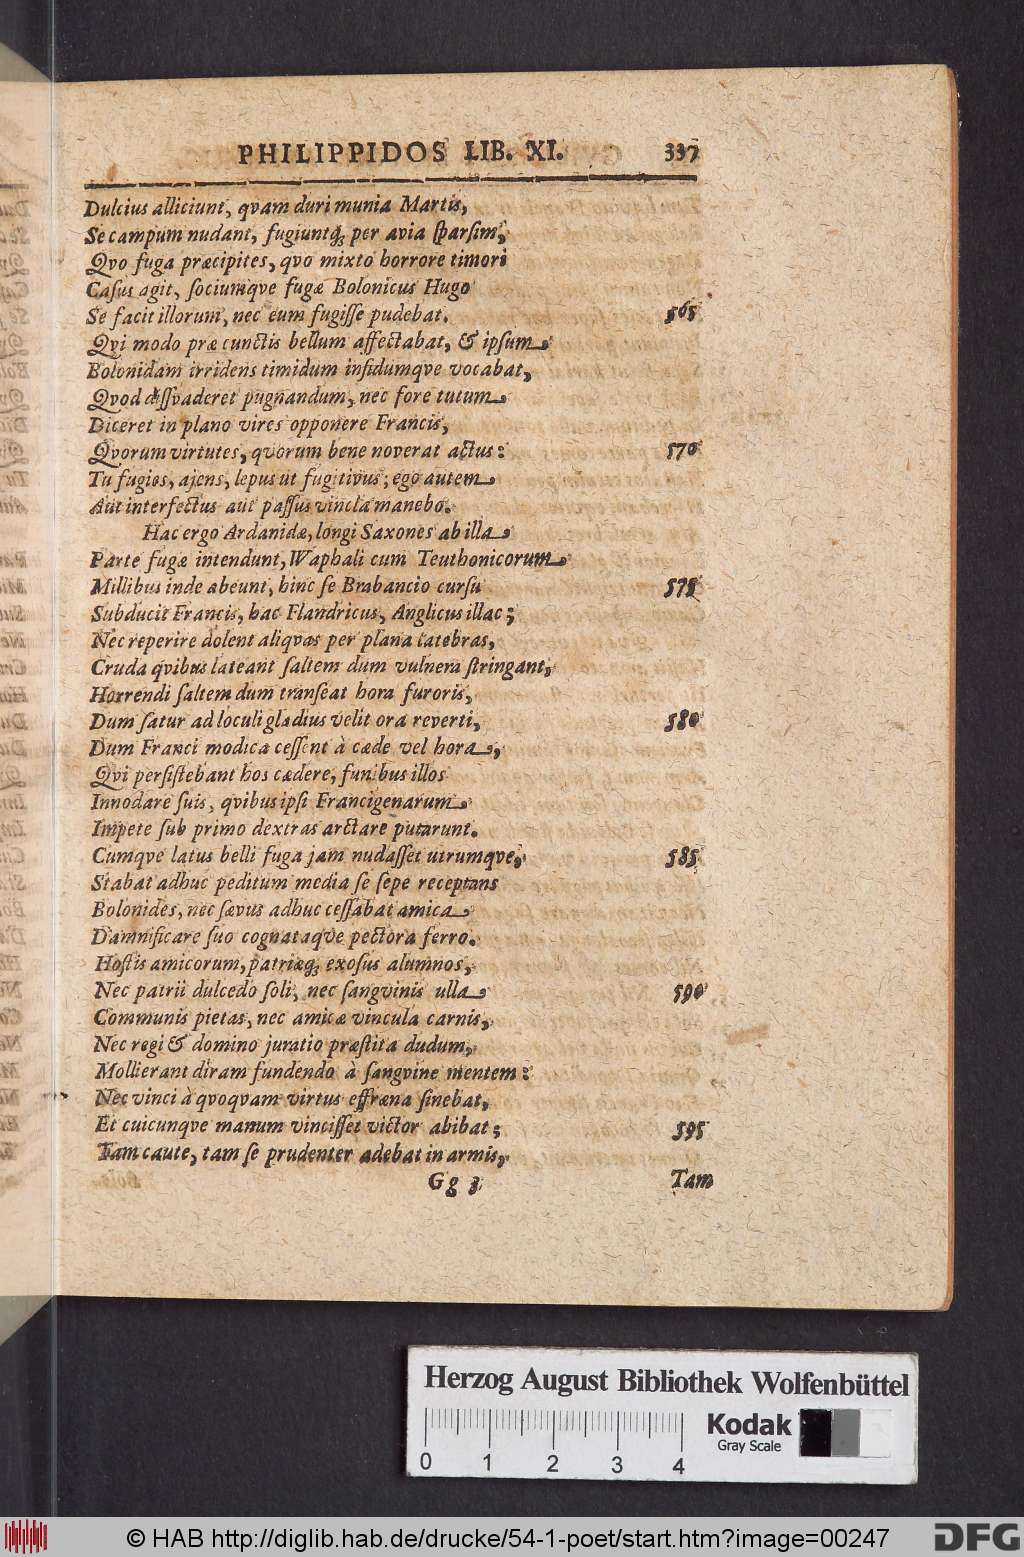 PHILIPPIDOS LIB. XI. 337
Dulcius alliciunt, qvam duri munia Martis,
Se campum nudant, fugiuntq; per avia sparsim,
Qvo fuga præcipites, qvo mixto horrore timori
Casus agit, sociumqve fugæ Bolonicus Hugo
Se facit illorum, nec eum fugisse pudebat. 565
Qvi modo præ cunctis bellum affectabat, & ipsum
Bolonidam irridens timidum infidumqve vocabat,
Qvod dissvaderet pugnandum, nec fore tutum
Diceret in plano vires opponere Francis,
Qvorum virtutes, qvorum bene noverat actus: 570
Tu fugies, ajens, lepus ut fugitivus; ego autem
Aut interfectus aut passus vincla manebo.
Hac ergo Ardanidæ, longi Saxones ab illa
Parte fugæ intendunt, Waphali cum Teuthonicorum
Millibus inde abeunt, hinc se Brabancio cursu 575
Subducit Francis, hac Flandricus, Anglicus illac;
Nec reperire dolent aliqvas per plana latebras,
Cruda qvibus lateant saltem dum vulnera stringant,
Horrendi saltem dum transeat hora furoris,
Dum satur ad loculi gladius velit ora reverti, 580
Dum Franci modica cessent à cæde vel hora,
Qvi persistebant hos cædere, funibus illos
Innodare suis, qvibus ipsi Francigenarum
Impete sub primo dextras arctare putarunt.
Cumqve latus belli fuga jam nudasset utrumqve, 585
Stabat adhuc peditum media se sepe receptans
Bolonides, nec sævus adhuc cessabat amica
Damnificare suo cognataqve pectora ferro.
Hostis amicorum, patriæq; exosus alumnos,
Nec patrii dulcedo soli, nec sangvinis ulla 590
Communis pietas, nec amicæ vincula carnis,
Nec regi & domino juratio præstita dudum,
Mollierant diram fundendo à sangvine mentem:
Nec vinci à qvoqvam virtus effræna sinebat,
Et cuicunqve manum vincisset victor abibat; 595
Tam caute, tam se prudenter adebat in armis,
Gg 3 Tam
Herzog August Bibliothek Wolfenbüttel
Kodak
Gray Scale
0 1 2 3 4
© HAB http://diglib.hab.de/drucke/54-1-poet/start.htm?image=00247
DFG